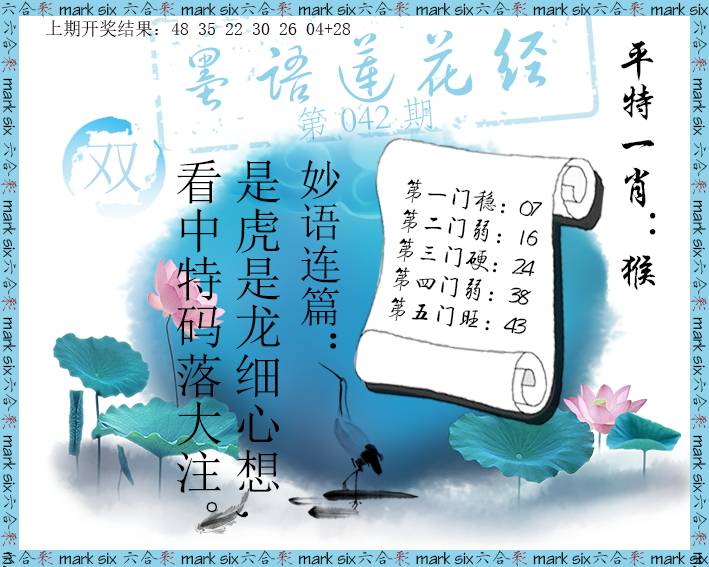 上期开奖结果：48 35 22 30 26 04+28
墨语莲花经
第 042 期
双
平特一肖：猴
妙语连篇：
是虎是龙细心想、
看中特码落大注。
第一门稳：07
第二门弱：16
第三门硬：24
第四门弱：38
第五门旺：43
六合彩 mark six 六合彩 mark six 六合彩 mark six 六合彩 mark six 六合彩 mark six